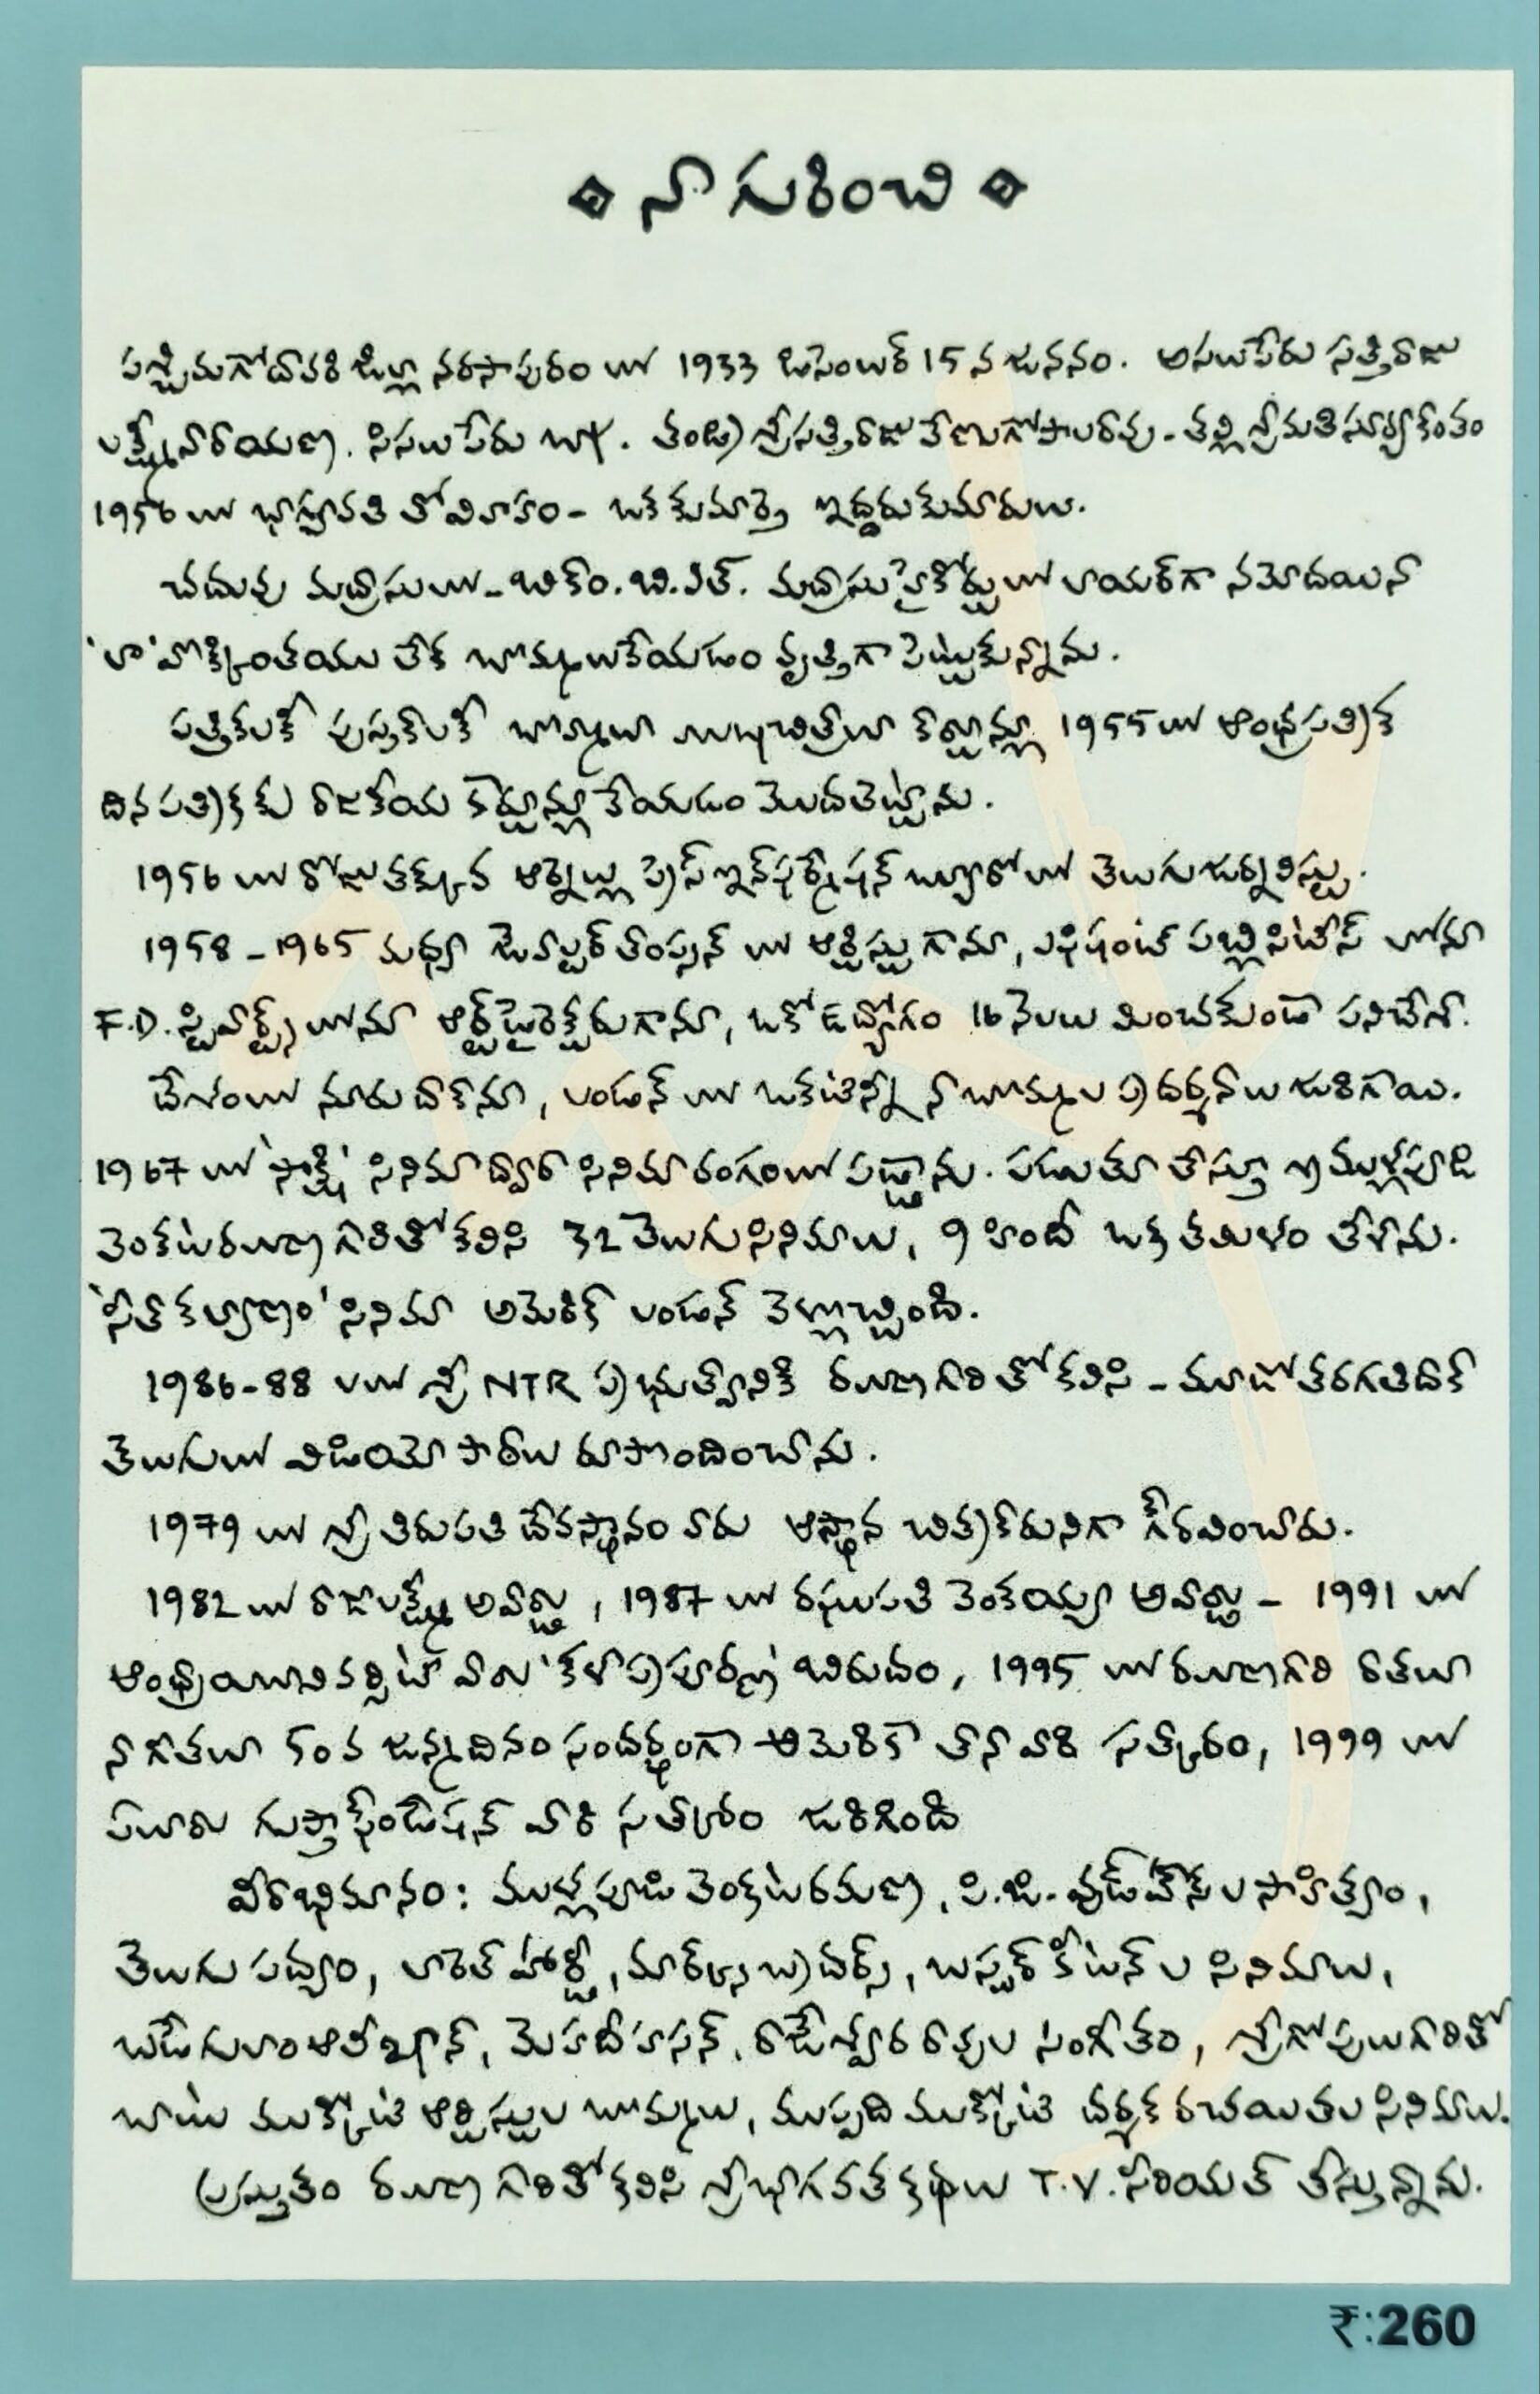 నా గురించి
పశ్చిమగోదావరి జిల్లా నరసాపురం లో 1933 డిసెంబర్ 15 న జననం. అసలుపేరు సత్తిరాజు
లక్ష్మీనారాయణ. సినిమాపేరు బాపు. తండ్రి శ్రీసత్తిరాజు వేణుగోపాలరావు - తల్లి శ్రీమతి సూర్యకాంతం
1956 లో భాగ్యవతి తోవివాహం - ఒక కుమార్తె ఇద్దరుకుమారులు.
చదువు మద్రాసులో - బికాం. బి.ఎల్. మద్రాసు హైకోర్టులో లాయర్‌గా నమోదయినా
'లా' వొక్కింతయు లేక బొమ్మలువేయడం వృత్తిగా పెట్టుకున్నాను.
పత్రికలకీ పుస్తకాలకీ బొమ్మలూ ముఖచిత్రాలూ కార్టూన్లూ 1955 లో ఆంధ్రపత్రిక
దినపత్రికకు రాజకీయ కార్టూన్లూ వేయడం మొదలెట్టాను.
1956 లో రోజు తక్కువ ఆర్నెల్లు ప్రెస్ ఇన్ఫర్మేషన్ బ్యూరోలో తెలుగు జర్నలిస్టు.
1958 - 1965 మధ్య జెవాల్టర్ తాంప్సన్ లో ఆర్టిస్టు గాను, ఎఫిషెంట్ పబ్లిసిటీస్ లోనూ
F.D. స్టివార్ట్స్ లోనూ ఆర్ట్ డైరెక్టరుగాను, ఒకో ఉద్యోగం 16 నెలలు మించకుండా పనిచేశా.
దేశంలో నూరు దాకానూ, లండన్ లో ఒకటిన్నీ నా బొమ్మల ప్రదర్శనలు జరిగాయి.
1967 లో 'సాక్షి' సినిమా ద్వారా సినిమా రంగంలో పడ్డాను. పడుతూ లేస్తూ శ్రీ ముళ్లపూడి
వెంకటరమణ గారితో కలిసి 32 తెలుగు సినిమాలు, 9 హిందీ ఒక్క తమిళం తీశాను.
'సీతాకళ్యాణం' సినిమా అమెరికా లండన్ వెళ్లొచ్చింది.
1986-88 లలో శ్రీ NTR ప్రభుత్వానికి రమణగారితో కలిసి - మూడో తరగతిదాకా
తెలుగులో వీడియో పాఠాలు రూపొందించాను.
1979 లో శ్రీ తిరుపతి దేవస్థానం వారు ఆస్థాన చిత్రకారునిగా గౌరవించారు.
1982 లో రాజాలక్ష్మీ అవార్డు, 1987 లో రఘుపతి వెంకయ్య అవార్డు - 1991 లో
ఆంధ్రా యూనివర్సిటీ వారి 'కళాప్రపూర్ణ' బిరుదం, 1995 లో రమణగారి రాతలూ
నా గీతలూ 50వ జన్మదినం సందర్భంగా అమెరికా తానా వారి సత్కారం, 1999 లో
ఏలూరు గుప్తా ఫౌండేషన్ వారి సత్కారం జరిగింది
వీరాభిమానం: ముళ్లపూడి వెంకటరమణ, పి.జి. వుడ్‌హౌస్‌ల సాహిత్యం,
తెలుగు పద్యం, లారెల్ హార్డీ, మార్క్స్ బ్రదర్స్, బస్టర్ కీటన్ ల సినిమాలు,
బడేగులాం ఆలీఖాన్, మెహదీహసన్, రాజేశ్వరరావుల సంగీతం, శ్రీగోపులుగారితో
బాటు ముక్కోటి ఆర్టిస్టుల బొమ్మలు, ముప్పది ముక్కోటి దర్శక రచయితల సినిమాలు.
ప్రస్తుతం రమణ గారితో కలిసి శ్రీభాగవత కథలు T.V. సీరియల్ తీస్తున్నాను.
₹:260